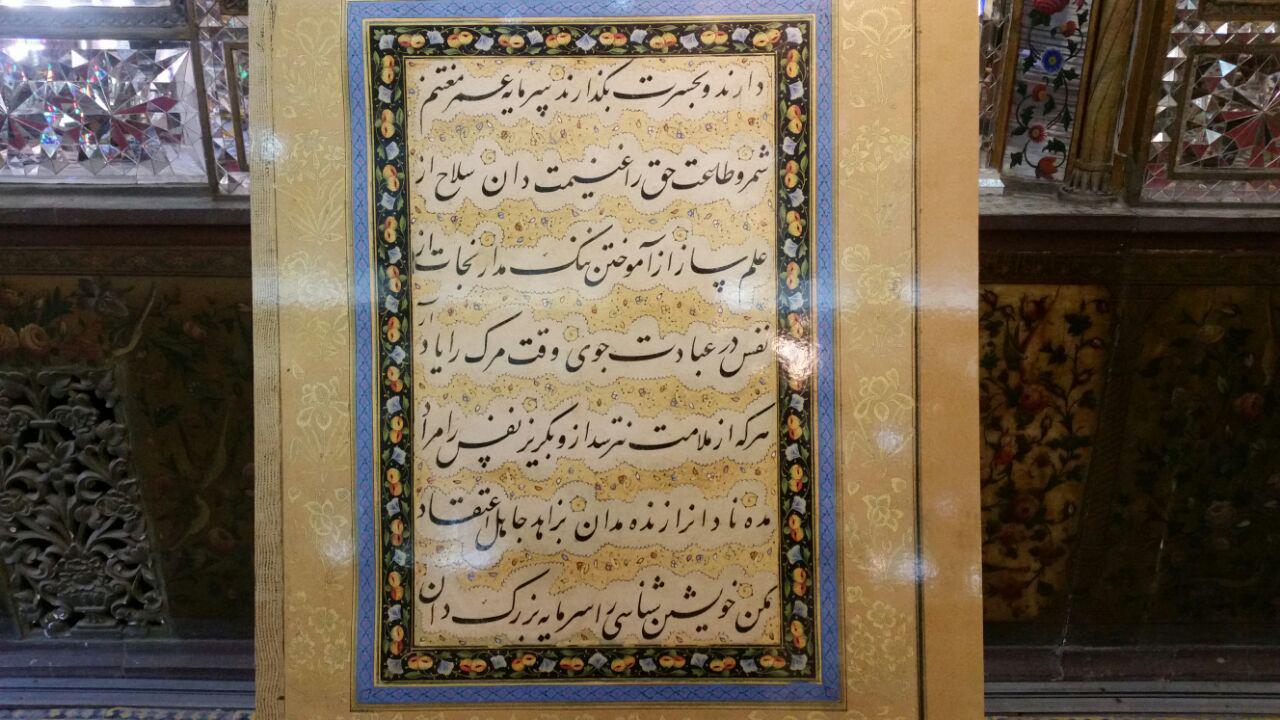 دارند و بحسرت بگذارند سرمایه عمر مغتنم
شمر و طاعت حق را غنیمت دان سلاح از
علم ساز از آموختن ننگ مدار نجات از
نفس در عبادت جوی وقت مرگ را یاد آر
هرکه از ملامت نترسد ازو بگریز نفس را مراد
مده نادانرا زنده مدان بزاهد جاهل اعتقاد
مکن خویشتن شناسی را سرمایه بزرگ دان